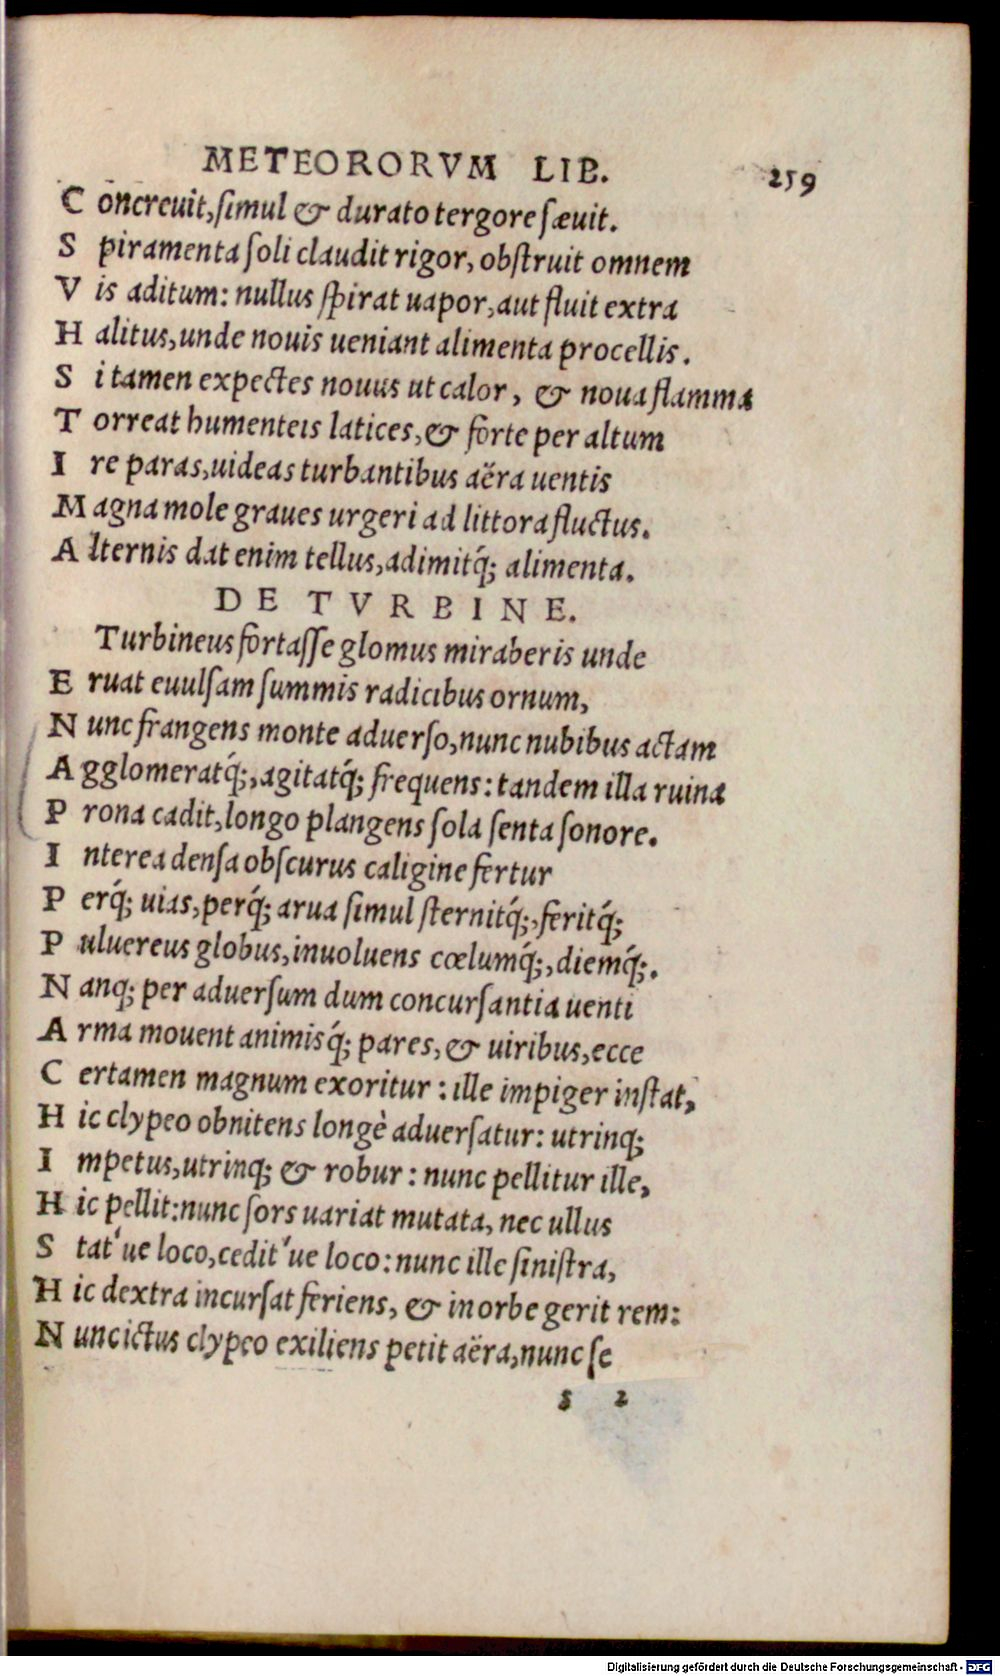 METEORORVM LIB. 259
C oncreuit,ſimul & durato tergore ſæuit.
S piramenta ſoli claudit rigor, obſtruit omnem
V is aditum: nullus ſpirat uapor,aut fluit extra
H alitus,unde nouis ueniant alimenta procellis.
S i tamen expectes nouus ut calor, & noua flamma
T orreat humenteis latices,& forte per altum
I re paras,uideas turbantibus aëra uentis
M agna mole graues urgeri ad littora fluctus.
A lternis dat enim tellus,adimitq́; alimenta.
DE TVRBINE.
Turbineus fortaſſe glomus miraberis unde
E ruat euulſam ſummis radicibus ornum,
N unc frangens monte aduerſo,nunc nubibus actam
A gglomeratq́;,agitatq́; frequens: tandem illa ruina
P rona cadit,longo plangens ſola ſenta ſonore.
I nterea denſa obſcurus caligine fertur
P erq́; uias,perq́; arua ſimul ſternitq́;,feritq́;
P uluereus globus,inuoluens cœlumq́;,diemq́;.
N anq; per aduerſum dum concurſantia uenti
A rma mouent animisq́; pares,& uiribus,ecce
C ertamen magnum exoritur: ille impiger inſtat,
H ic clypeo obnitens longè aduerſatur: utrinq;
I mpetus,utrinq; & robur: nunc pellitur ille,
H ic pellit:nunc ſors uariat mutata, nec ullus
S tat'ue loco,cedit'ue loco: nunc ille ſiniſtra,
H ic dextra incurſat feriens, & in orbe gerit rem:
N unc ictus clypeo exiliens petit aëra,nunc ſe
s 2
Digitalisierung gefördert durch die Deutsche Forschungsgemeinschaft - DFG